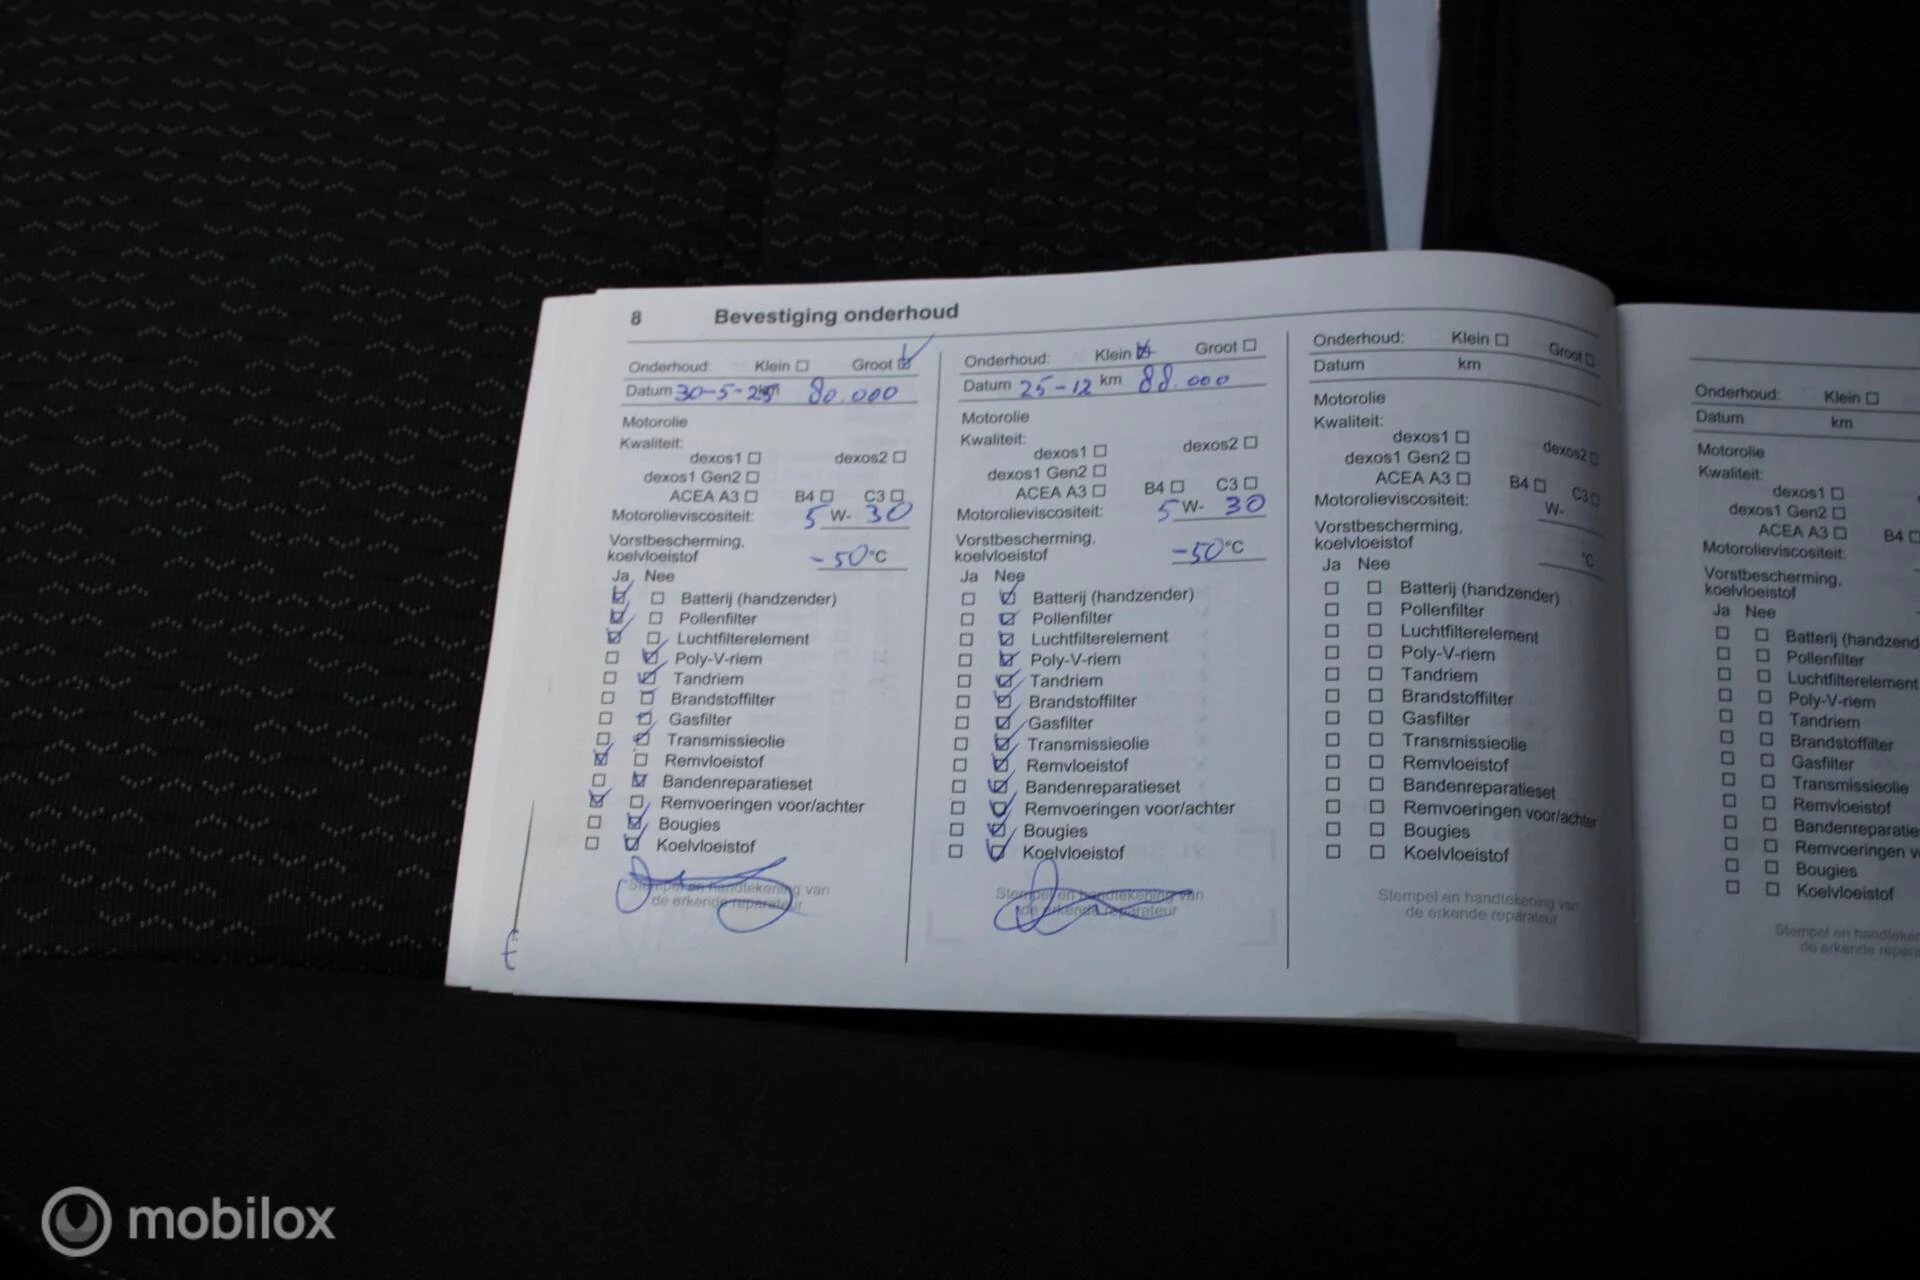 8 Bevestiging onderhoud
Onderhoud: Klein Groot
Datum 30-5-23 km 80.000
Motorolie
Kwaliteit:
dexos1 dexos2
dexos1 Gen2
ACEA A3 B4 C3
Motorolieviscositeit: 5 W- 30
Vorstbescherming,
koelvloeistof -50 °C
Ja Nee
Batterij (handzender)
Pollenfilter
Luchtfilterelement
Poly-V-riem
Tandriem
Brandstoffilter
Gasfilter
Transmissieolie
Remvloeistof
Bandenreparatieset
Remvoeringen voor/achter
Bougies
Koelvloeistof
Stempel en handtekening van
de erkende reparateur
Onderhoud: Klein Groot
Datum 25-12 km 88.000
Motorolie
Kwaliteit:
dexos1 dexos2
dexos1 Gen2
ACEA A3 B4 C3
Motorolieviscositeit: 5 W- 30
Vorstbescherming,
koelvloeistof -50 °C
Ja Nee
Batterij (handzender)
Pollenfilter
Luchtfilterelement
Poly-V-riem
Tandriem
Brandstoffilter
Gasfilter
Transmissieolie
Remvloeistof
Bandenreparatieset
Remvoeringen voor/achter
Bougies
Koelvloeistof
Stempel en handtekening van
de erkende reparateur
Onderhoud: Klein Groot
Datum km
Motorolie
Kwaliteit:
dexos1 dexos2
dexos1 Gen2
ACEA A3 B4 C3
Motorolieviscositeit: W-
Vorstbescherming,
koelvloeistof °C
Ja Nee
Batterij (handzender)
Pollenfilter
Luchtfilterelement
Poly-V-riem
Tandriem
Brandstoffilter
Gasfilter
Transmissieolie
Remvloeistof
Bandenreparatieset
Remvoeringen voor/achter
Bougies
Koelvloeistof
Stempel en handtekening van
de erkende reparateur
Onderhoud: Klein
Datum km
Motorolie
Kwaliteit:
dexos1
dexos1 Gen2
ACEA A3 B4
Motorolieviscositeit:
Vorstbescherming,
koelvloeistof
Ja Nee
Batterij (handzend
Pollenfilter
Luchtfilterelement
Poly-V-riem
Tandriem
Brandstoffilter
Gasfilter
Transmissieolie
Remvloeistof
Bandenreparatie
Remvoeringen v
Bougies
Koelvloeistof
Stempel en handteken
de erkende repara
mobilox